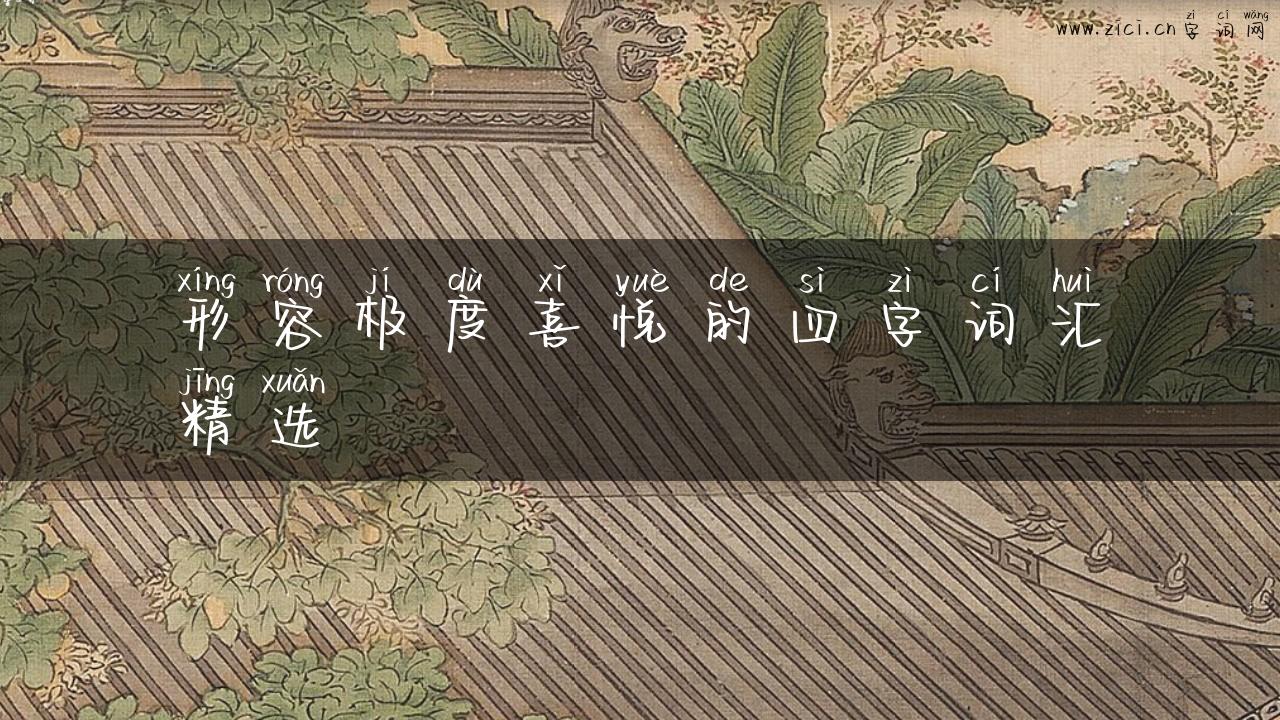 zì cí wǎng
www.zici.cn 字词网
xíng róng jí dù xǐ yuè de sì zì cí huì
形容极度喜悦的四字词汇
jīng xuǎn
精选